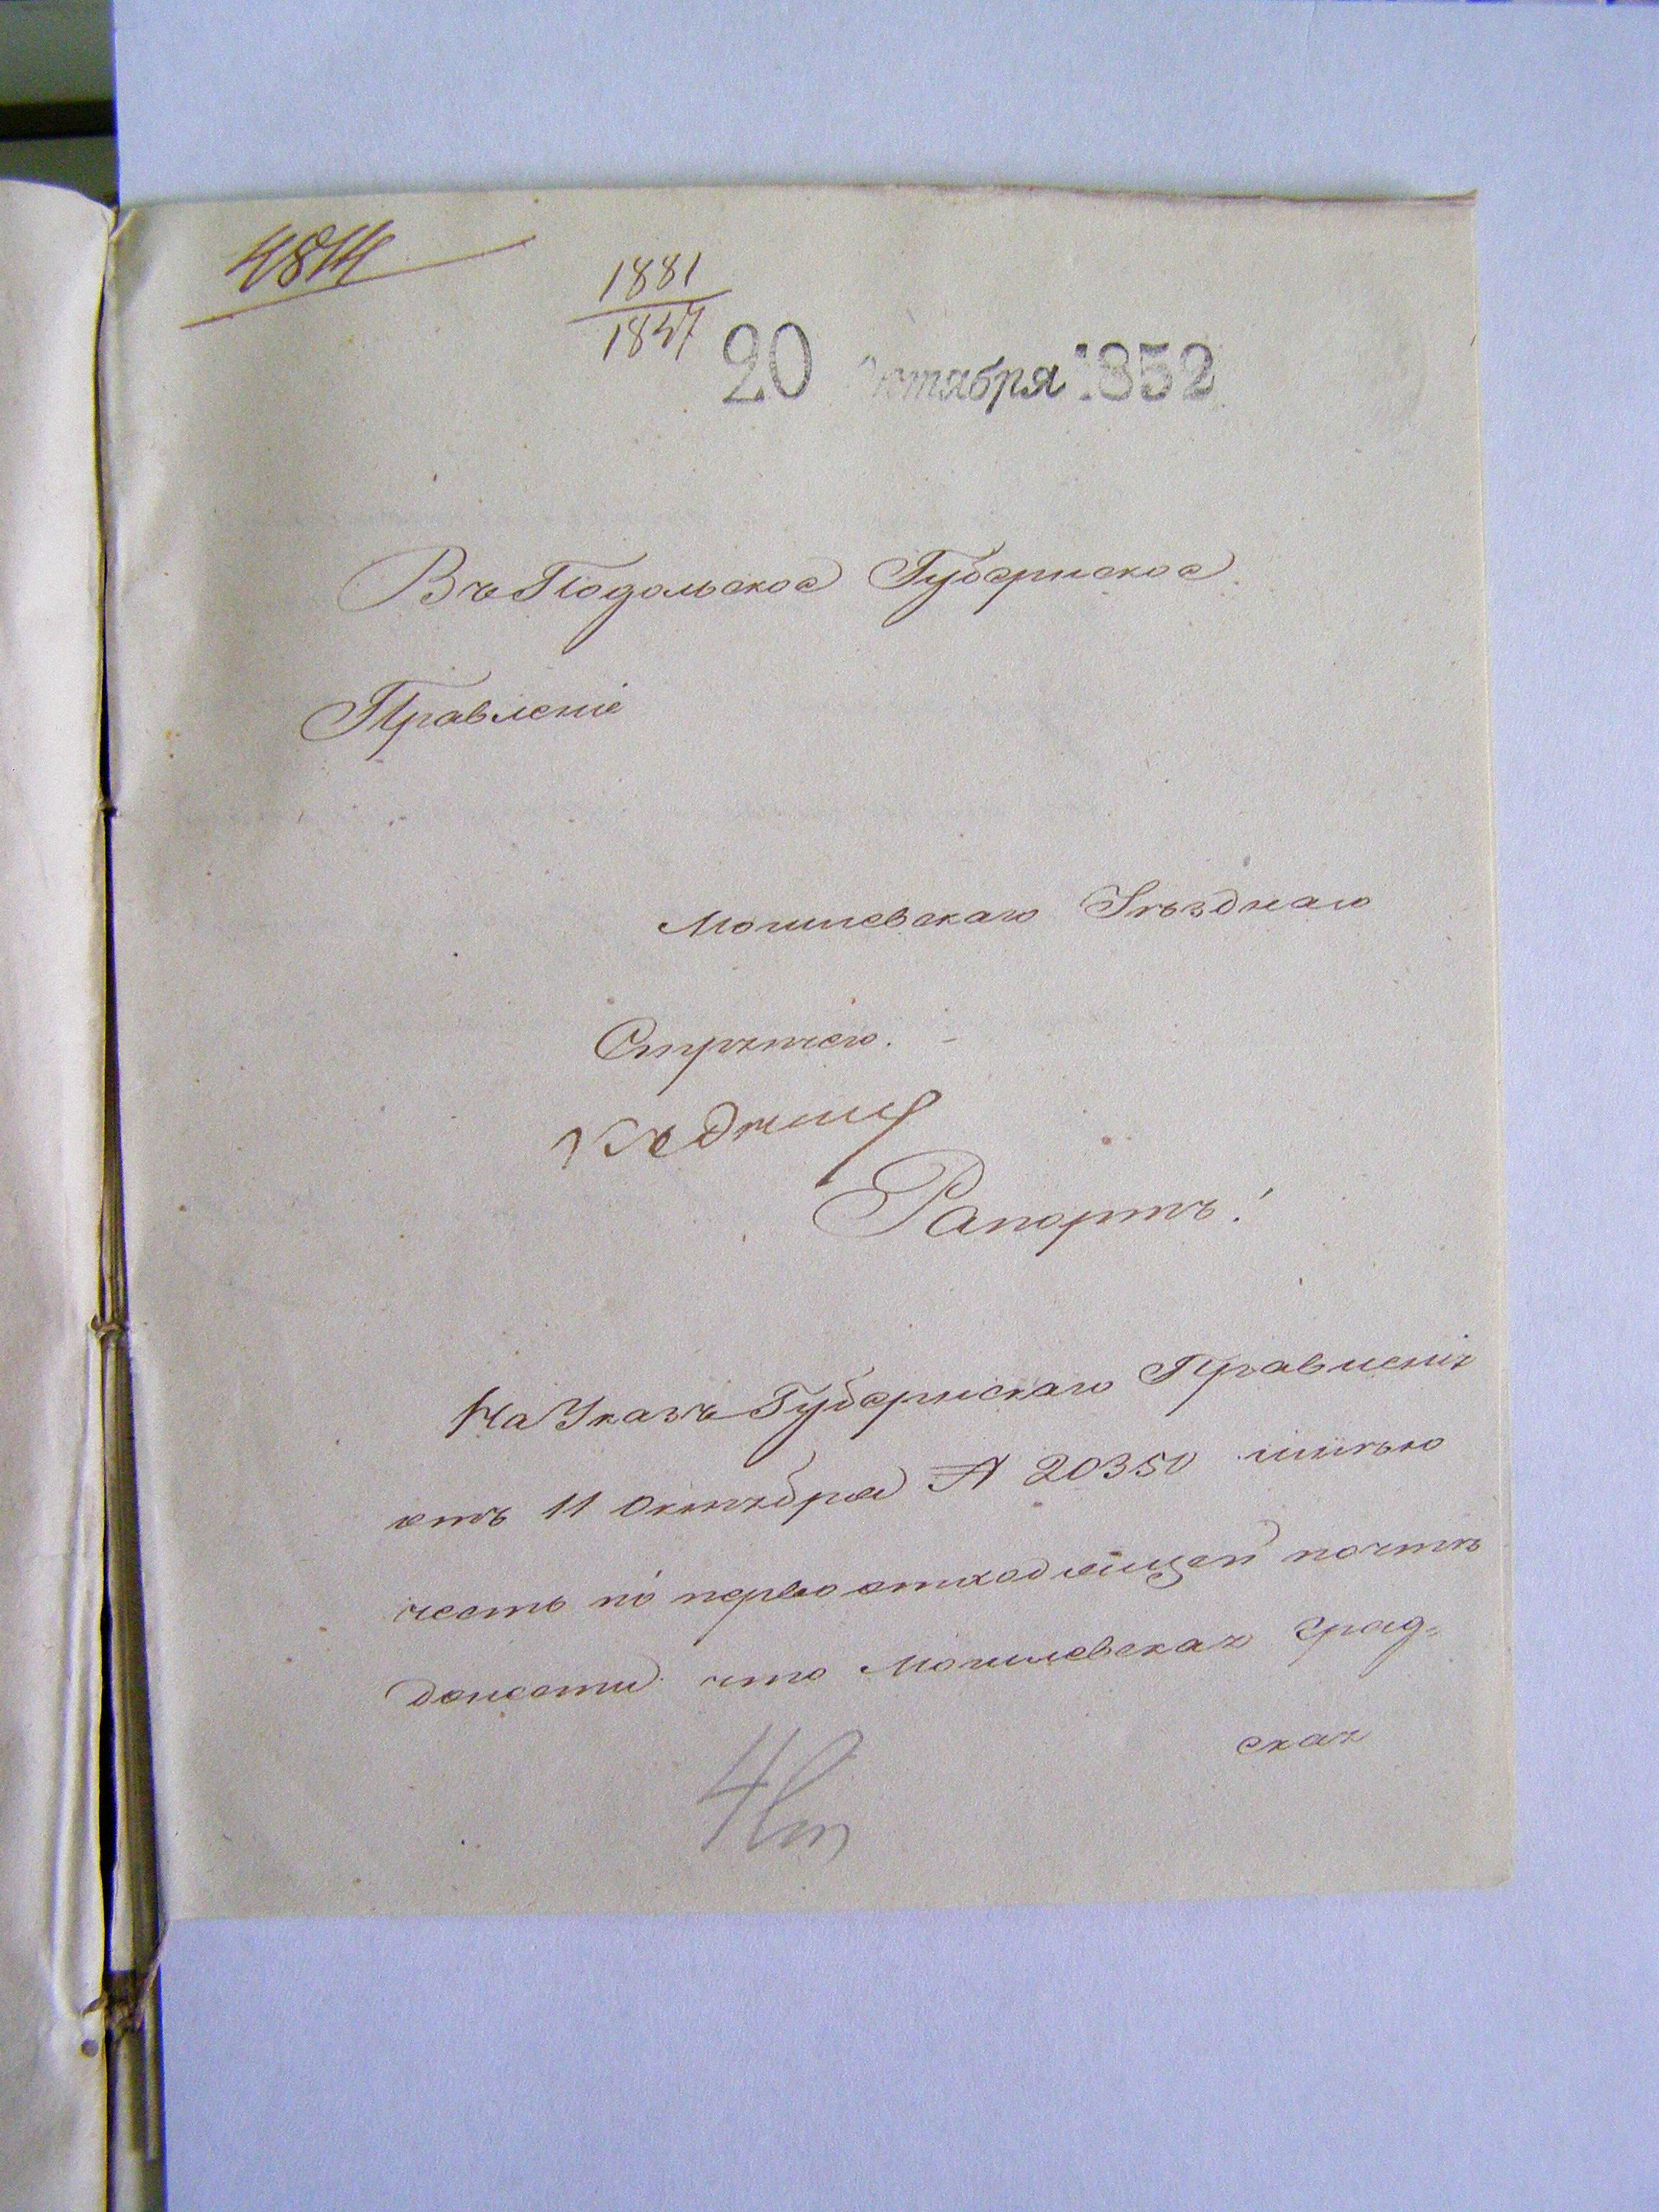 4814
1881
1847
20 Октября 1852
Въ Подольское Губернское
Правленіе
Могилевскаго Уѣзднаго
Стряпчего.
Къ дѣлу
Рапортъ!
На Указъ Губернскаго Правленія
отъ 11 Октября № 20350 имѣю
честь по первоотходящей почтѣ
донести что Могилевская град-
ская